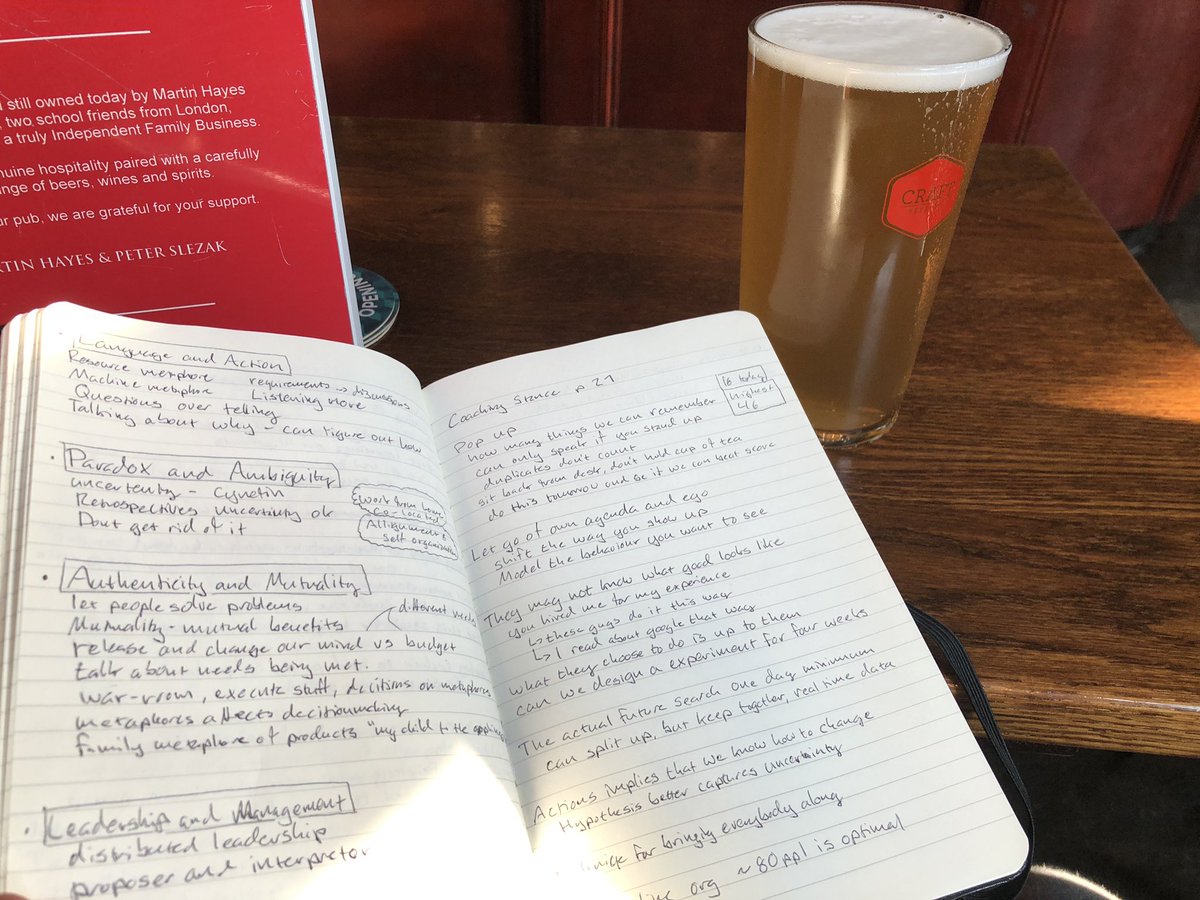 still owned today by Martin Hayes
two school friends from London,
a truly Independent Family Business.
hospitality paired with a carefully
of beers, wines and spirits.
pub, we are grateful for your support.
HAYES & PETER SLEZAK
OPENIN
CRAFT
Language and Action
Resource metphore requirements → discussions
Machine metaphore Listening more
Questions over telling
Talking about why - can figure out how
• Paradox and Ambiquity
uncertenty - Cynefin
Retrospectives uncertinty ok
Dont get rid of it
work from home
co-located
Allignment &
self organization
• Authenticity and Mutuality
let people solve problems
Mutuality - mutual benefits
different needs
release and change our mind vs budget
talk about needs being met.
war-room, execute stuff, decitions on metaphores
metaphores affects decitionmaking
family metaphore of products "my child to the
• Leadership and Management
distributed leadership
proposer and interpretor
Coaching Stance p 27
16 today
Highest
46
Pop up
how many things we can remember
can only speak if you stand up
duplicates don't count
sit back from desk, don't hold cup of tea
do this tomorrow and se if we can beat score
Let go of own agenda and ego
shift the way you show up
Model the behaviour you want to see
They may not know what good looks like
you hired me for my experience
↳ these guys do it this way
↳ I read about google that way
what they choose to do is up to them
can we design a experiment for four weeks
The actual future search one day minimum
can split up, but keep together, real time data
Actions implies that we know how to change
Hypothesis better captures uncertainty
for bringing everybody along
org ~80ppl is optimal